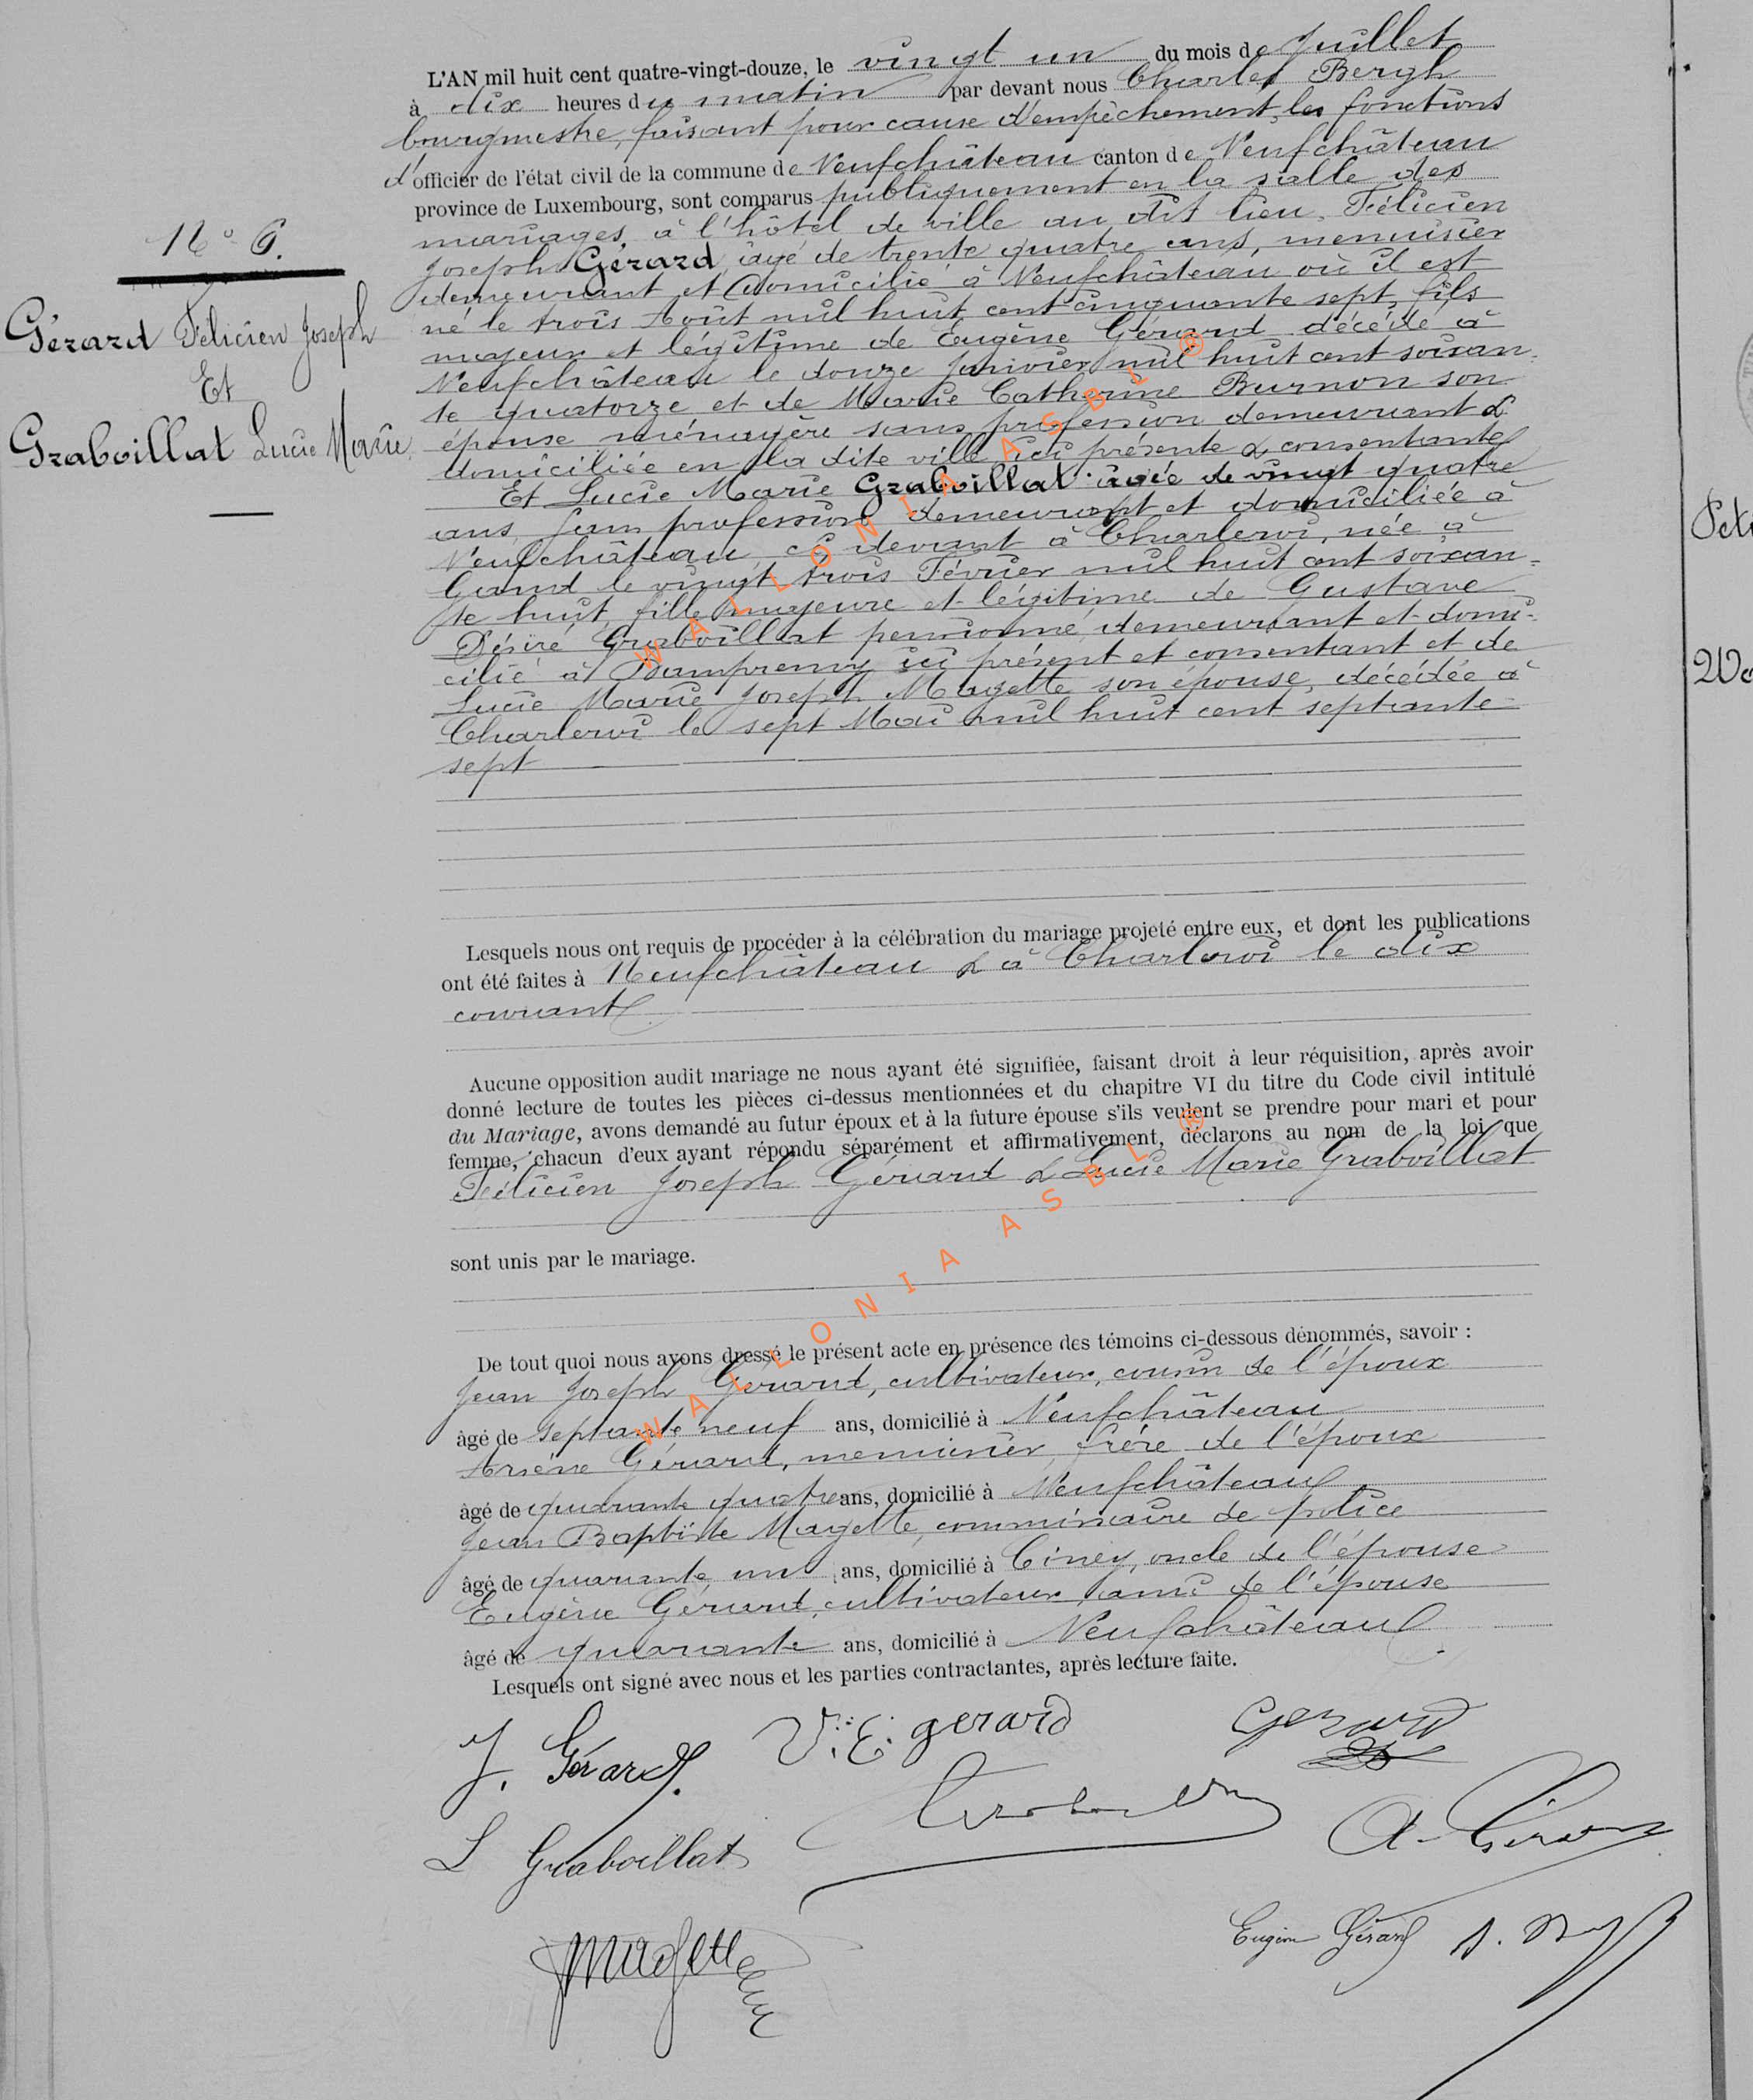 L'AN mil huit cent quatre-vingt-douze, le vingt un du mois de Juillet
à dix heures du matin par devant nous Charles Bergh
bourgmestre, faisant pour cause d'empêchement, les fonctions
d'officier de l'état civil de la commune de Neufchâteau canton de Neufchâteau
province de Luxembourg, sont comparus publiquement en la salle des
mariages, à l'hôtel de ville au dit lieu, Félicien
Joseph Gérard, âgé de trente quatre ans, menuisier
demeurant et domicilié à Neufchâteau où il est
né le trois Août mil huit cent cinquante sept, fils
majeur et légitime de Eugène Gérard décédé à
Neufchâteau le douze Janvier mil huit cent soixan-
te quatorze et de Marie Catherine Burnon son
épouse ménagère sans profession demeurant &
domiciliée en la dite ville ici présente & consentante
Et Lucie Marie Graboillat âgée de vingt quatre
ans, sans profession demeurant et domiciliée à
Neufchâteau, ci devant à Charleroi, née à
Gand le vingt trois Février mil huit cent soixan-
te huit, fille majeure et légitime de Gustave
Désiré Graboillat pensionné, demeurant et domi-
cilié à Dampremy ici présent et consentant et de
Lucie Marie Joseph Magette son épouse, décédée à
Charleroi le sept Mai mil huit cent septante
sept
N° 6.
Gérard Félicien Joseph
Et
Graboillat Lucie Marie
Lesquels nous ont requis de procéder à la célébration du mariage projeté entre eux, et dont les publications
ont été faites à Neufchâteau & à Charleroi le dix
courant
Aucune opposition audit mariage ne nous ayant été signifiée, faisant droit à leur réquisition, après avoir
donné lecture de toutes les pièces ci-dessus mentionnées et du chapitre VI du titre du Code civil intitulé
du Mariage, avons demandé au futur époux et à la future épouse s'ils veulent se prendre pour mari et pour
femme, chacun d'eux ayant répondu séparément et affirmativement, déclarons au nom de la loi que
Félicien Joseph Gérard & Lucie Marie Graboillat
sont unis par le mariage.
De tout quoi nous avons dressé le présent acte en présence des témoins ci-dessous dénommés, savoir :
Jean Joseph Gérard, cultivateur, cousin de l'époux
âgé de septante neuf ans, domicilié à Neufchâteau
Arsène Gérard, menuisier, frère de l'époux
âgé de quarante quatre ans, domicilié à Neufchâteau
Jean Baptiste Magette, commissaire de police
âgé de quarante un ans, domicilié à Ciney, oncle de l'épouse
Eugène Gérard, cultivateur, ami de l'épouse
âgé de quarante ans, domicilié à Neufchâteau
Lesquels ont signé avec nous et les parties contractantes, après lecture faite.
J. Gérard. V. E. gerard Gerard
L Graboillat A. Gérard
Magette Eugène Gérard
WALLONIA ASBL ®
WALLONIA ASBL ®